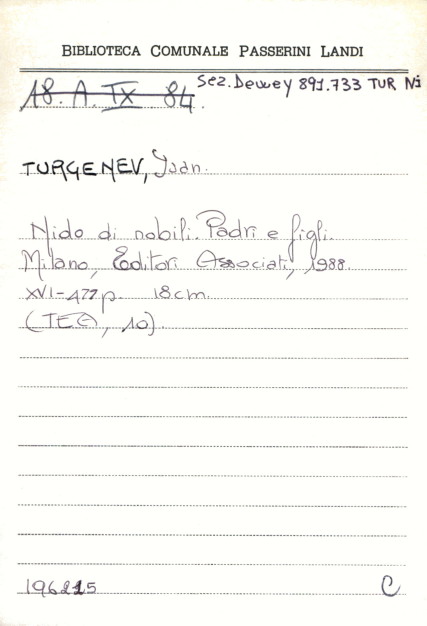 BIBLIOTECA COMUNALE PASSERINI LANDI
18. A. IX 84 Sez. Dewey 891.733 TUR Ni
TURGENEV, Ivan.
Nido di nobili. Padri e figli.
Milano, Editori Associati, 1988.
XVI-477 p. 18 cm.
(TEA, 10).
C